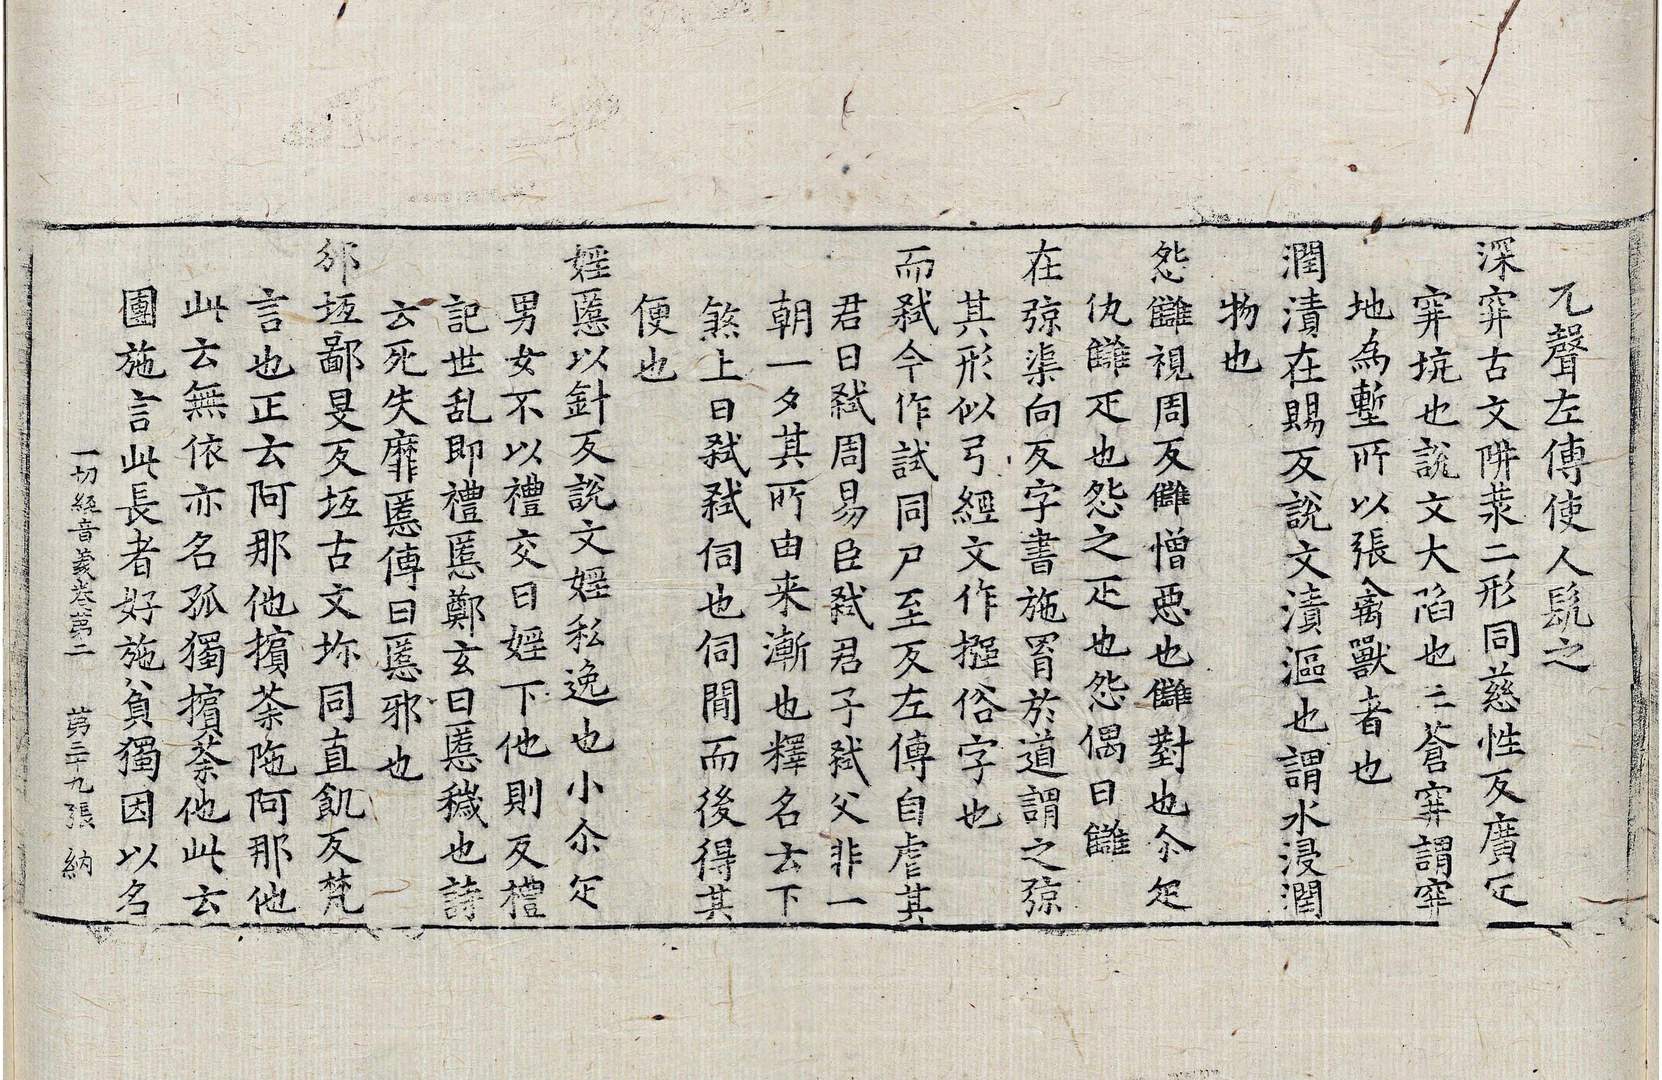 兀聲左傳使人髡之
深穽古文阱䒮二形同慈性反廣疋
穽坑也說文大陷也三蒼穽謂穿
地為塹所以張禽獸者也
潤漬在賜反說文漬漚也謂水浸潤
物也
怨讎視周反讎憎惡也讎對也尒疋
仇讎疋也怨之疋也怨偶曰讎
在弶渠向反字書施罥於道謂之弶
其形似弓經文作摾俗字也
而弒今作試同尸至反左傳自虐其
君曰弒周易臣弒君子弒父非一
朝一夕其所由来漸也釋名云下
煞上曰弒弒伺也伺間而後得其
便也
婬慝以針反說文婬私逸也小尒疋
男女不以禮交曰婬下他則反禮
記世乱即禮慝鄭玄曰慝穢也詩
云死失靡慝傳曰慝邪也
邠坻鄙旻反坻古文坋同直飢反梵
言也正云阿那他擯荼陁阿那他
此云無依亦名孤獨擯荼他此云
團施言此長者好施貧獨因以名
一切經音義卷第二 第三十九張 納